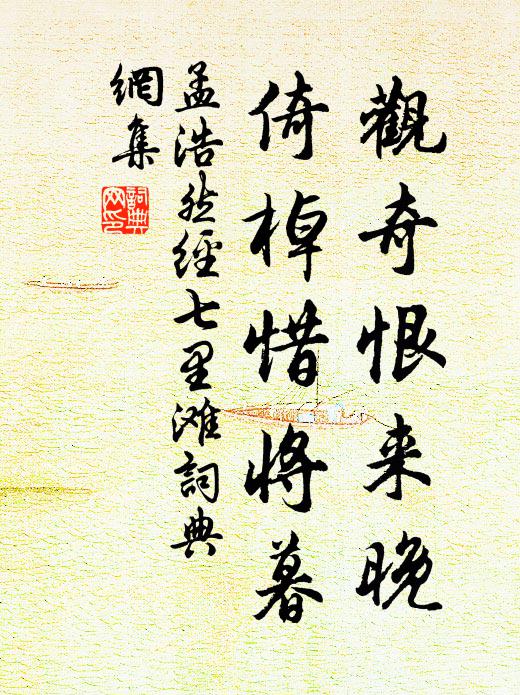 觀奇恨来晚
倚棹惜将暮
孟浩然經七里滩詞典
網集
詞典網印